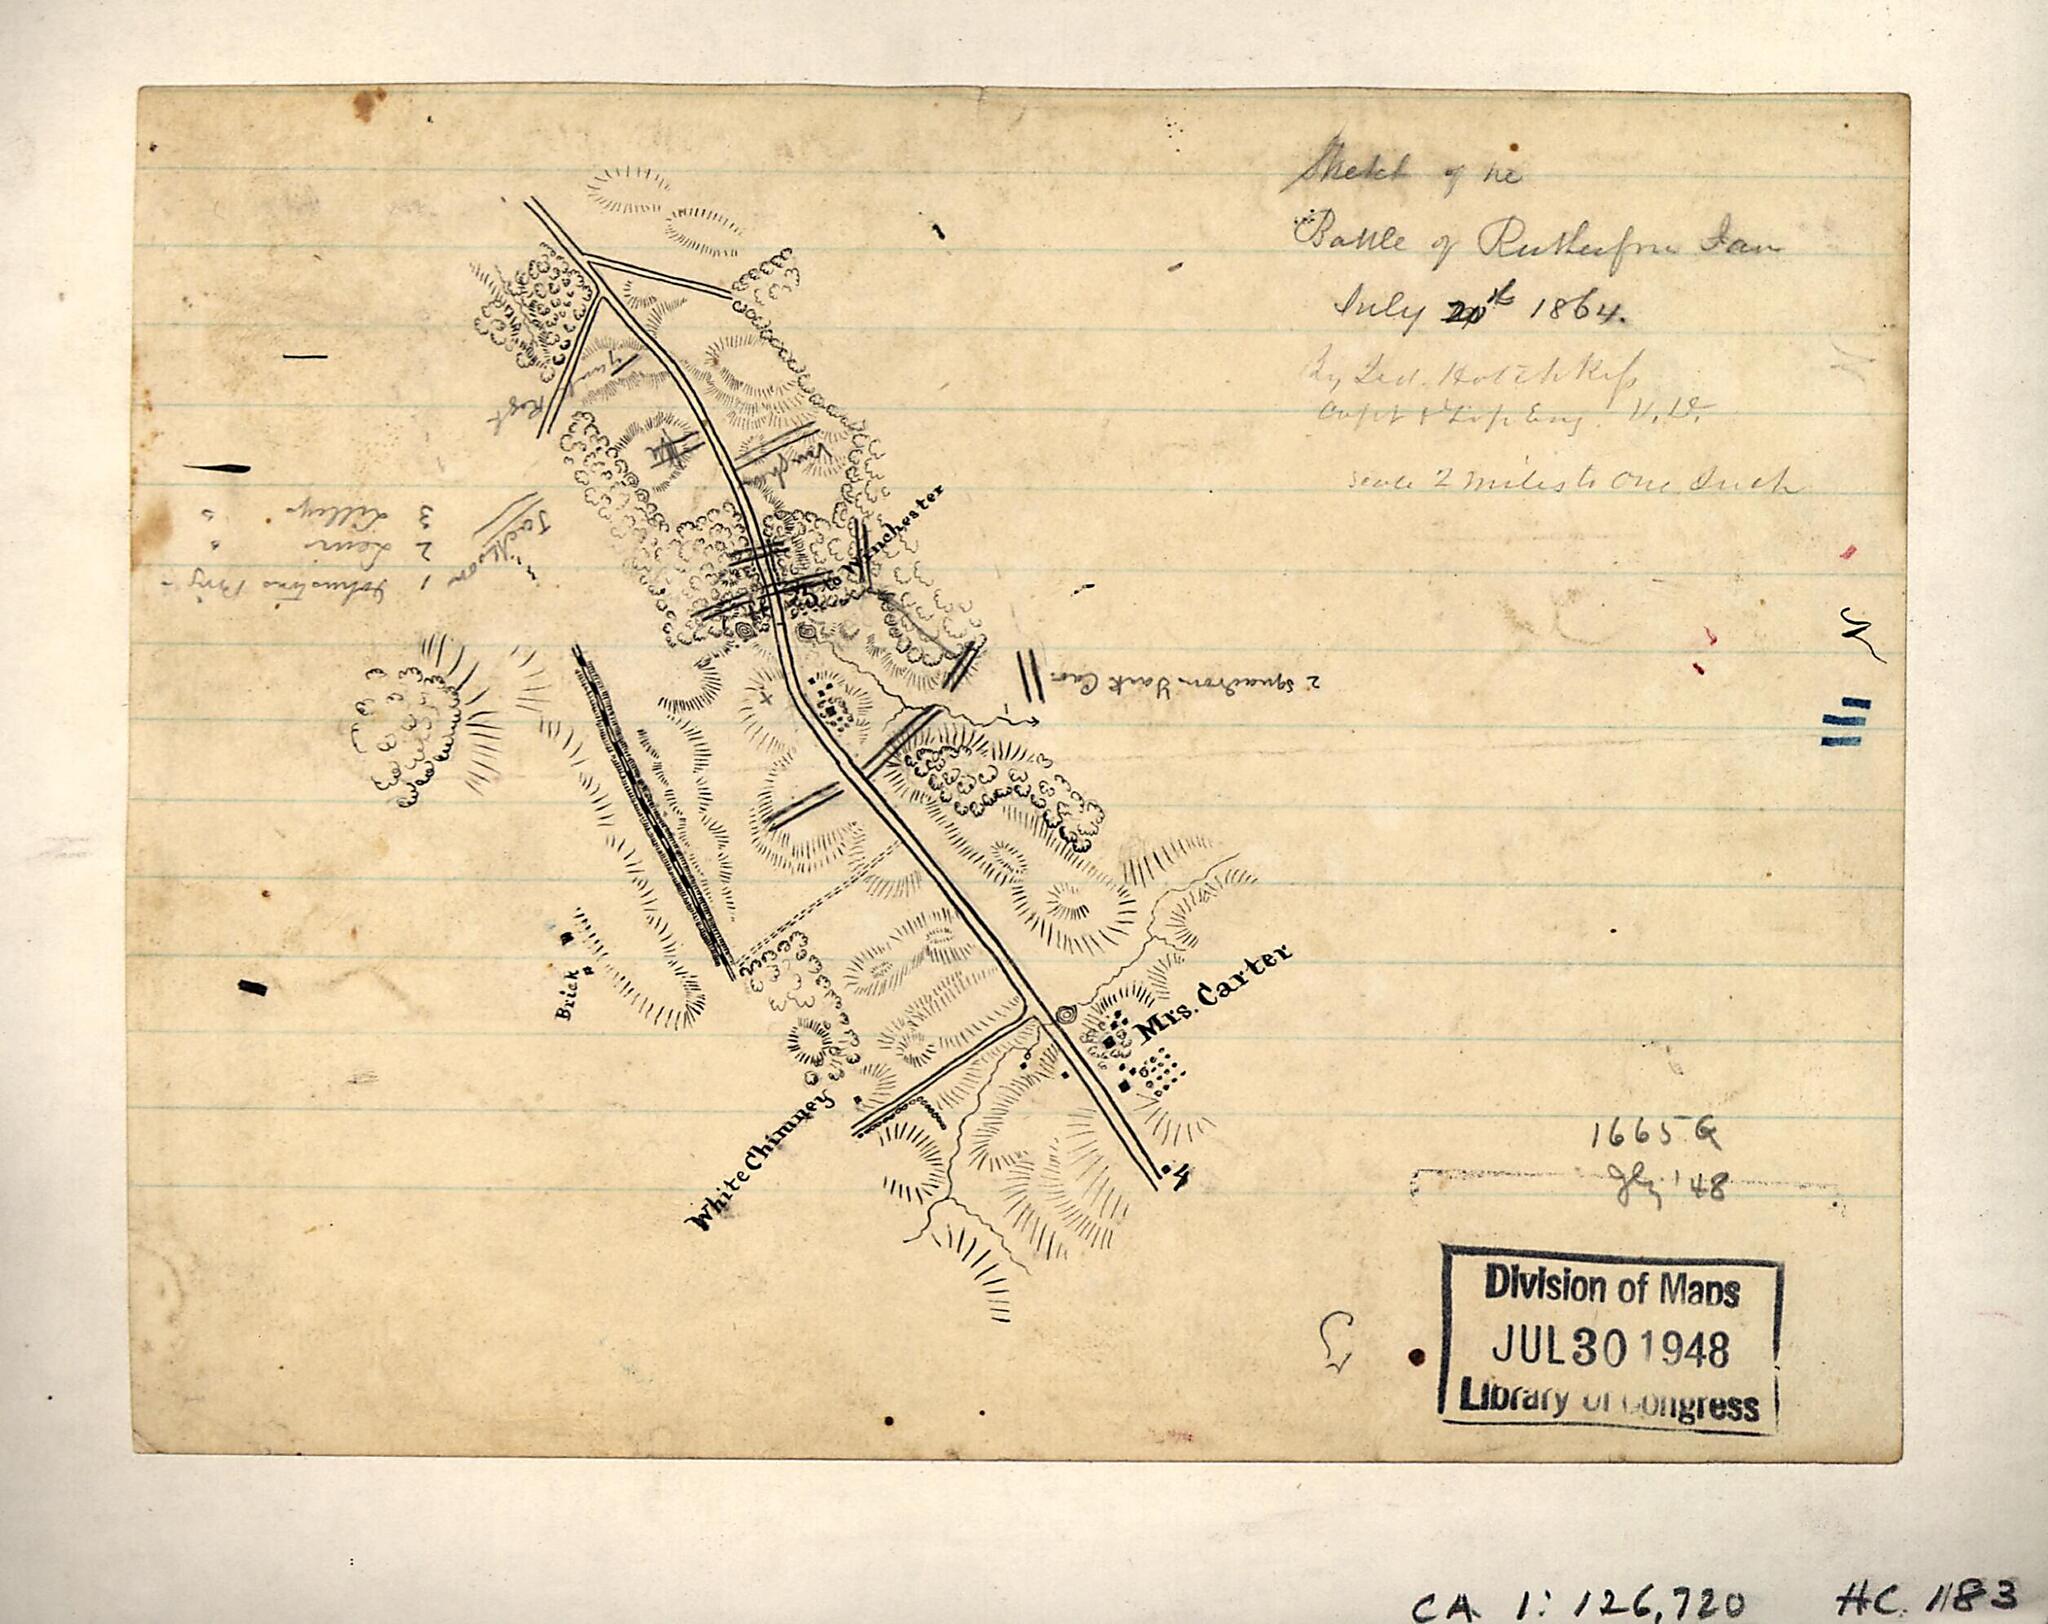 Sketch of the
Battle of Rutherford Farm
July 20th 1864.
by Jed. Hotchkiss
Capt & Top Eng. V.D.
Scale 2 miles to one Inch
Regt
Vaugh
5 to Winchester
Jackson
1 Johnstons Brig
2 Lewis "
3 Lilleys "
2 Squadron York Cav
N
Brick
Mrs. Carter
White Chimney
4
1665 G
July '48
Division of Maps
JUL 30 1948
Library of Congress
CA 1:126,720
HC. 1183